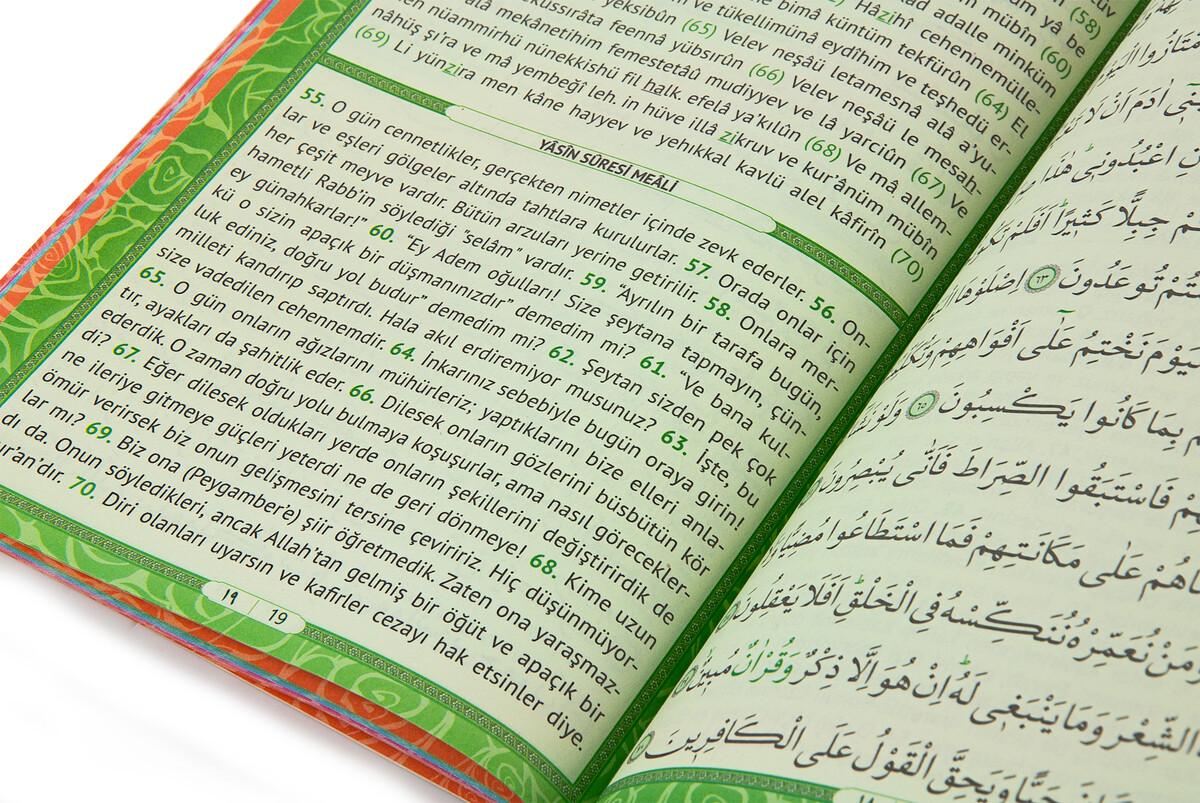 mübîn (60)
ad adalle minküm
Hâzihî cehennemülle.
bimâ küntüm tekfürûn (64) El
ve tükellimünâ eydîhim ve teşhedü er-
yeksibûn (65) Velev neşâü letamesnâ alâ a'yu-
ekussırâta feennâ yübsırûn (66) Velev neşâü le mesah-
alâ mekânetihim femestetâû mudiyyev ve lâ yarciûn (67) Ve
en nüammirhü nünekkishü fil halk. efelâ ya'kılûn (68) Ve mâ allem-
nâhüş şi'ra ve mâ yembeğî leh. in hüve illâ zikruv ve kur'ânüm mübîn
(69) Li yünzira men kâne hayyev ve yehıkkal kavlü alel kâfirîn (70)
YÂSÎN SÛRESİ MEÂLİ
55. O gün cennetlikler, gerçekten nimetler içinde zevk ederler. 56. On-
lar ve eşleri gölgeler altında tahtlara kurulurlar. 57. Orada onlar için
her çeşit meyve vardır. Bütün arzuları yerine getirilir. 58. Onlara mer-
hametli Rabb'in söylediği "selâm" vardır. 59. "Ayrılın bir tarafa bugün,
ey günahkarlar!" 60. "Ey Adem oğulları! Size şeytana tapmayın, çün-
kü o sizin apaçık bir düşmanınızdır" demedim mi? 61. "Ve bana kul-
luk ediniz, doğru yol budur" demedim mi? 62. Şeytan sizden pek çok
milleti kandırıp saptırdı. Hala akıl erdiremiyor musunuz? 63. İşte, bu
size vadedilen cehennemdir. 64. İnkarınız sebebiyle bugün oraya girin!
65. O gün onların ağızlarını mühürleriz; yaptıklarını bize elleri anla-
tır, ayakları da şahitlik eder. 66. Dilesek onların gözlerini büsbütün kör
ederdik. O zaman doğru yolu bulmaya koşuşurlar, ama nasıl görecekler-
di? 67. Eğer dilesek oldukları yerde onların şekillerini değiştirirdik de
ne ileriye gitmeye güçleri yeterdi ne de geri dönmeye! 68. Kime uzun
ömür verirsek biz onun gelişmesini tersine çeviririz. Hiç düşünmüyor-
lar mı? 69. Biz ona (Peygamber'e) şiir öğretmedik. Zaten ona yaraşmaz-
dı da. Onun söyledikleri, ancak Allah'tan gelmiş bir öğüt ve apaçık bir
ur'an'dır. 70. Diri olanları uyarsın ve kafirler cezayı hak etsinler diye.
١٩ 19
اٰدَمَ اَنْ لَا
اعْبُدُونٖى هٰذَا
جِبِلًّا كَثٖيرًا اَفَلَمْ
تُوعَدُونَ ﴿٦٣﴾ اِصْلَوْهَا
نَخْتِمُ عَلٰٓى اَفْوَاهِهِمْ
بِمَا كَانُوا يَكْسِبُونَ ﴿٦٥﴾ وَلَوْ
فَاسْتَبَقُوا الصِّرَاطَ فَاَنّٰى يُبْصِرُونَ
عَلٰى مَكَانَتِهِمْ فَمَا اسْتَطَاعُوا
وَمَنْ نُعَمِّرْهُ نُنَكِّسْهُ فِى الْخَلْقِ اَفَلَا يَعْقِلُونَ
الشِّعْرَ وَمَا يَنْبَغٖى لَهُ اِنْ هُوَ اِلَّا ذِكْرٌ وَقُرْاٰنٌ مُبٖينٌ
وَيَحِقَّ الْقَوْلُ عَلَى الْكَافِرٖينَ